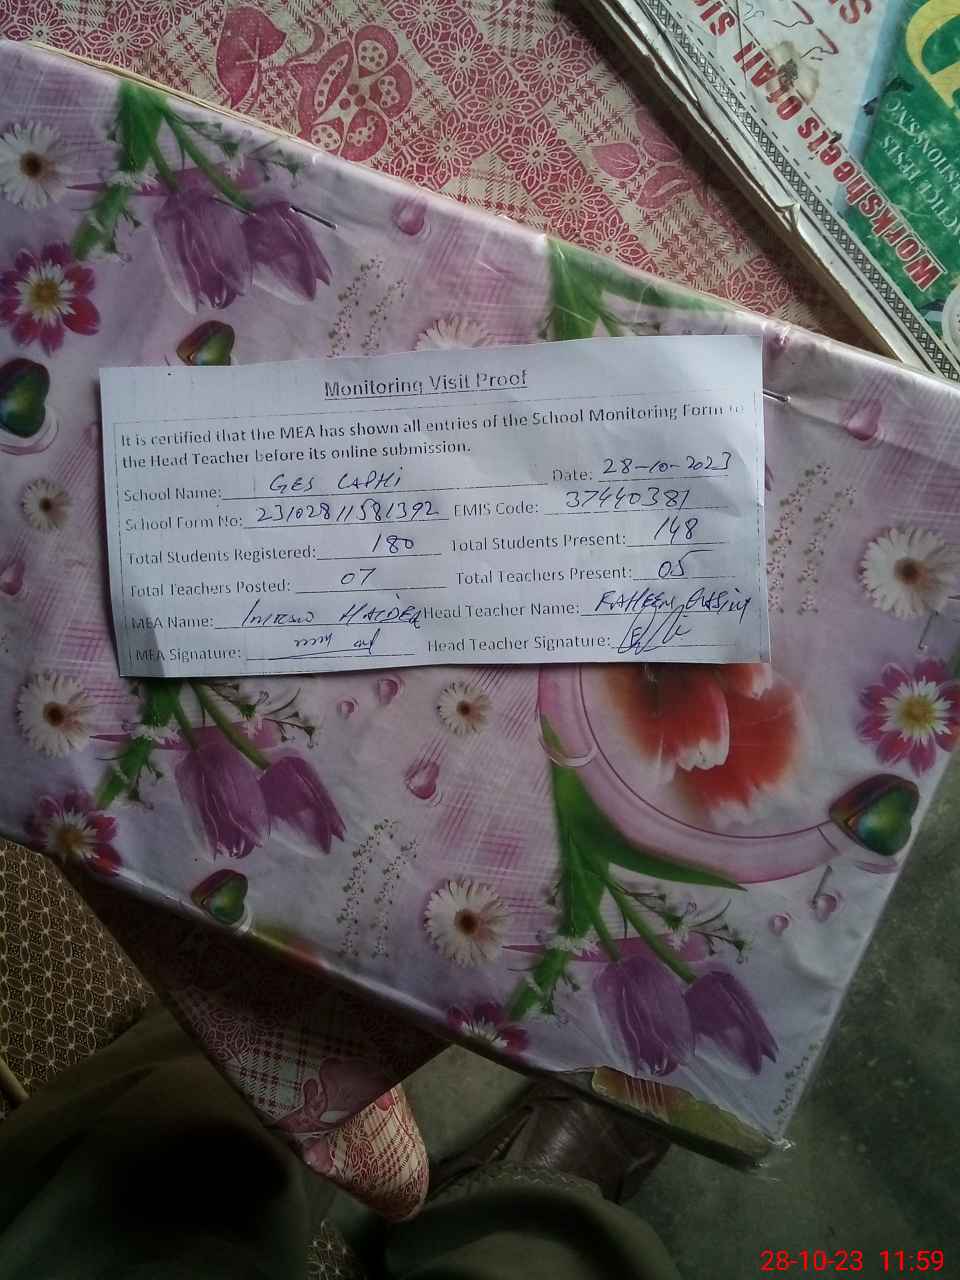 Worksheets OLAII
Monitoring Visit Proof
It is certified that the MEA has shown all entries of the School Monitoring Form to
the Head Teacher before its online submission.
School Name: GES Date: 28-10-2023
School Form No: 23102811581392 EMIS Code: 37440381
Total Students Registered: 180 Total Students Present: 148
Total Teachers Posted: 07 Total Teachers Present: 05
MEA Name: Head Teacher Name:
MEA Signature: Head Teacher Signature:
28-10-23 11:59